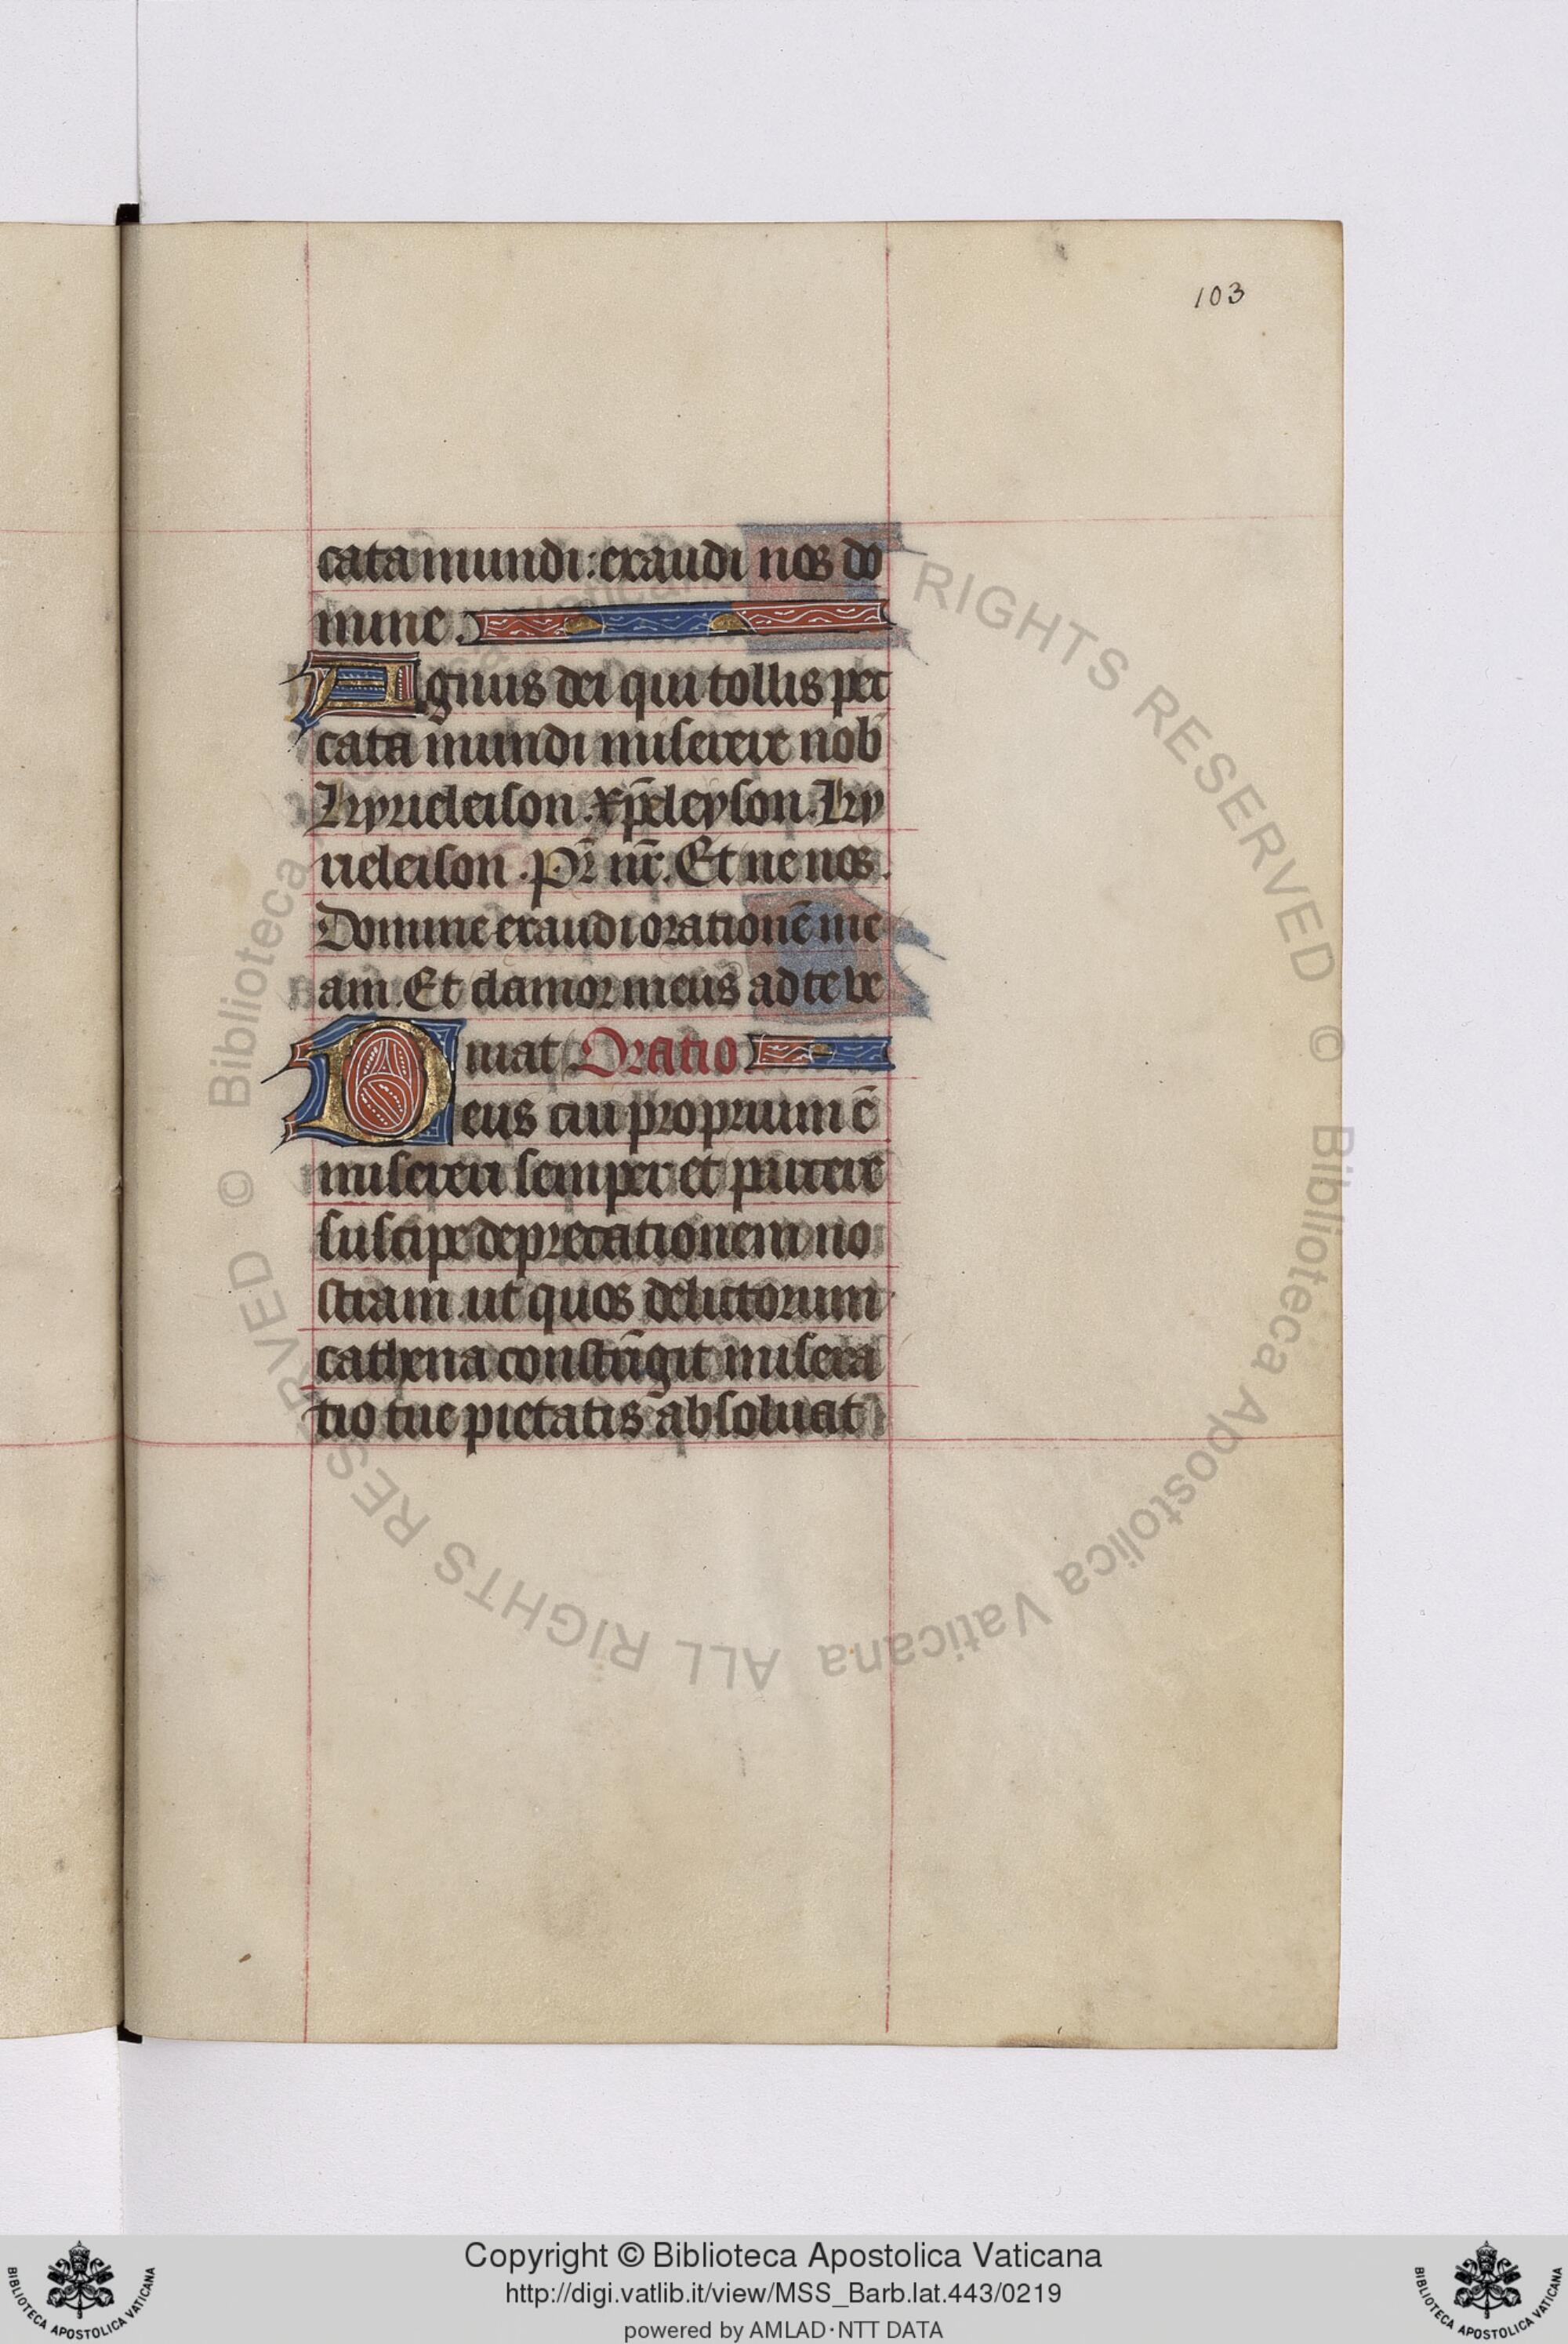 103
cata mundi: exaudi nos do
mine.
Agnus dei qui tollis pec
cata mundi miserere nob
Kyrieleison. xp̄eleyson. Ky
rieleison. Pr̄ nr̄. Et ne nos.
Domine exaudi orationē me
am. Et clamor meus ad te ve
niat Oratio
Deus cui proprium ē
misereri semper et parcere
suscipe deprecationem no
stram. ut quos delictorum
cathena constrīgit misera
tio tue pietatis absoluat
© Biblioteca Apostolica Vaticana ALL RIGHTS RESERVED © Biblioteca Apostolica Vaticana ALL RIGHTS RESERVED
Copyright © Biblioteca Apostolica Vaticana
http://digi.vatlib.it/view/MSS_Barb.lat.443/0219
powered by AMLAD·NTT DATA
BIBLIOTECA APOSTOLICA VATICANA
BIBLIOTECA APOSTOLICA VATICANA